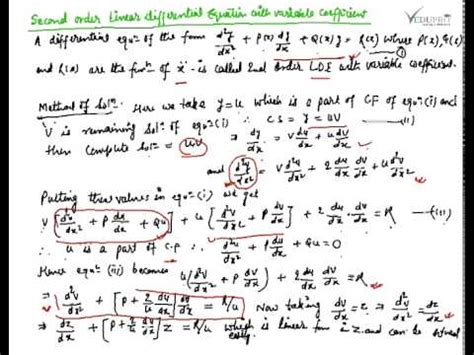 Second order Linear differential Equation with variable coefficient
VEDUPRIT
A differential equⁿ of the form d²y/dx² + P(x) dy/dx + Q(x)y = R(x) where P(x), Q(x)
and R(x) are the funⁿ of x is called 2nd order LDE with variable coefficient.
Method of Solⁿ. Here we take y=u which is a part of CF of equⁿ(i) and
V is remaining Solⁿ of equⁿ(i) ∴ CS = y = uv —(ii)
then Compute Solⁿ = uv ⇒ dy/dx = v du/dx + u dv/dx
and d²y/dx² = v d²u/dx² + 2 du/dx dv/dx + u d²v/dx²
Putting these values in equⁿ(i) we get
v [d²u/dx² + P du/dx + Qu] + u [d²v/dx² + P dv/dx] + 2 du/dx · dv/dx = R —(iii)
∴ u is a part of C.F ∴ d²u/dx² + P du/dx + Qu = 0
Hence equⁿ(iii) becomes u(d²v/dx² + P dv/dx) + 2 du/dx dv/dx = R
⇒ d²v/dx² + [P + 2/u du/dx] dv/dx = R/u Now taking dv/dx = z ⇒ d²v/dx² = dz/dx
⇒ dz/dx + [P + 2/u du/dx] z = R/u which is linear in z and can be solved
easily